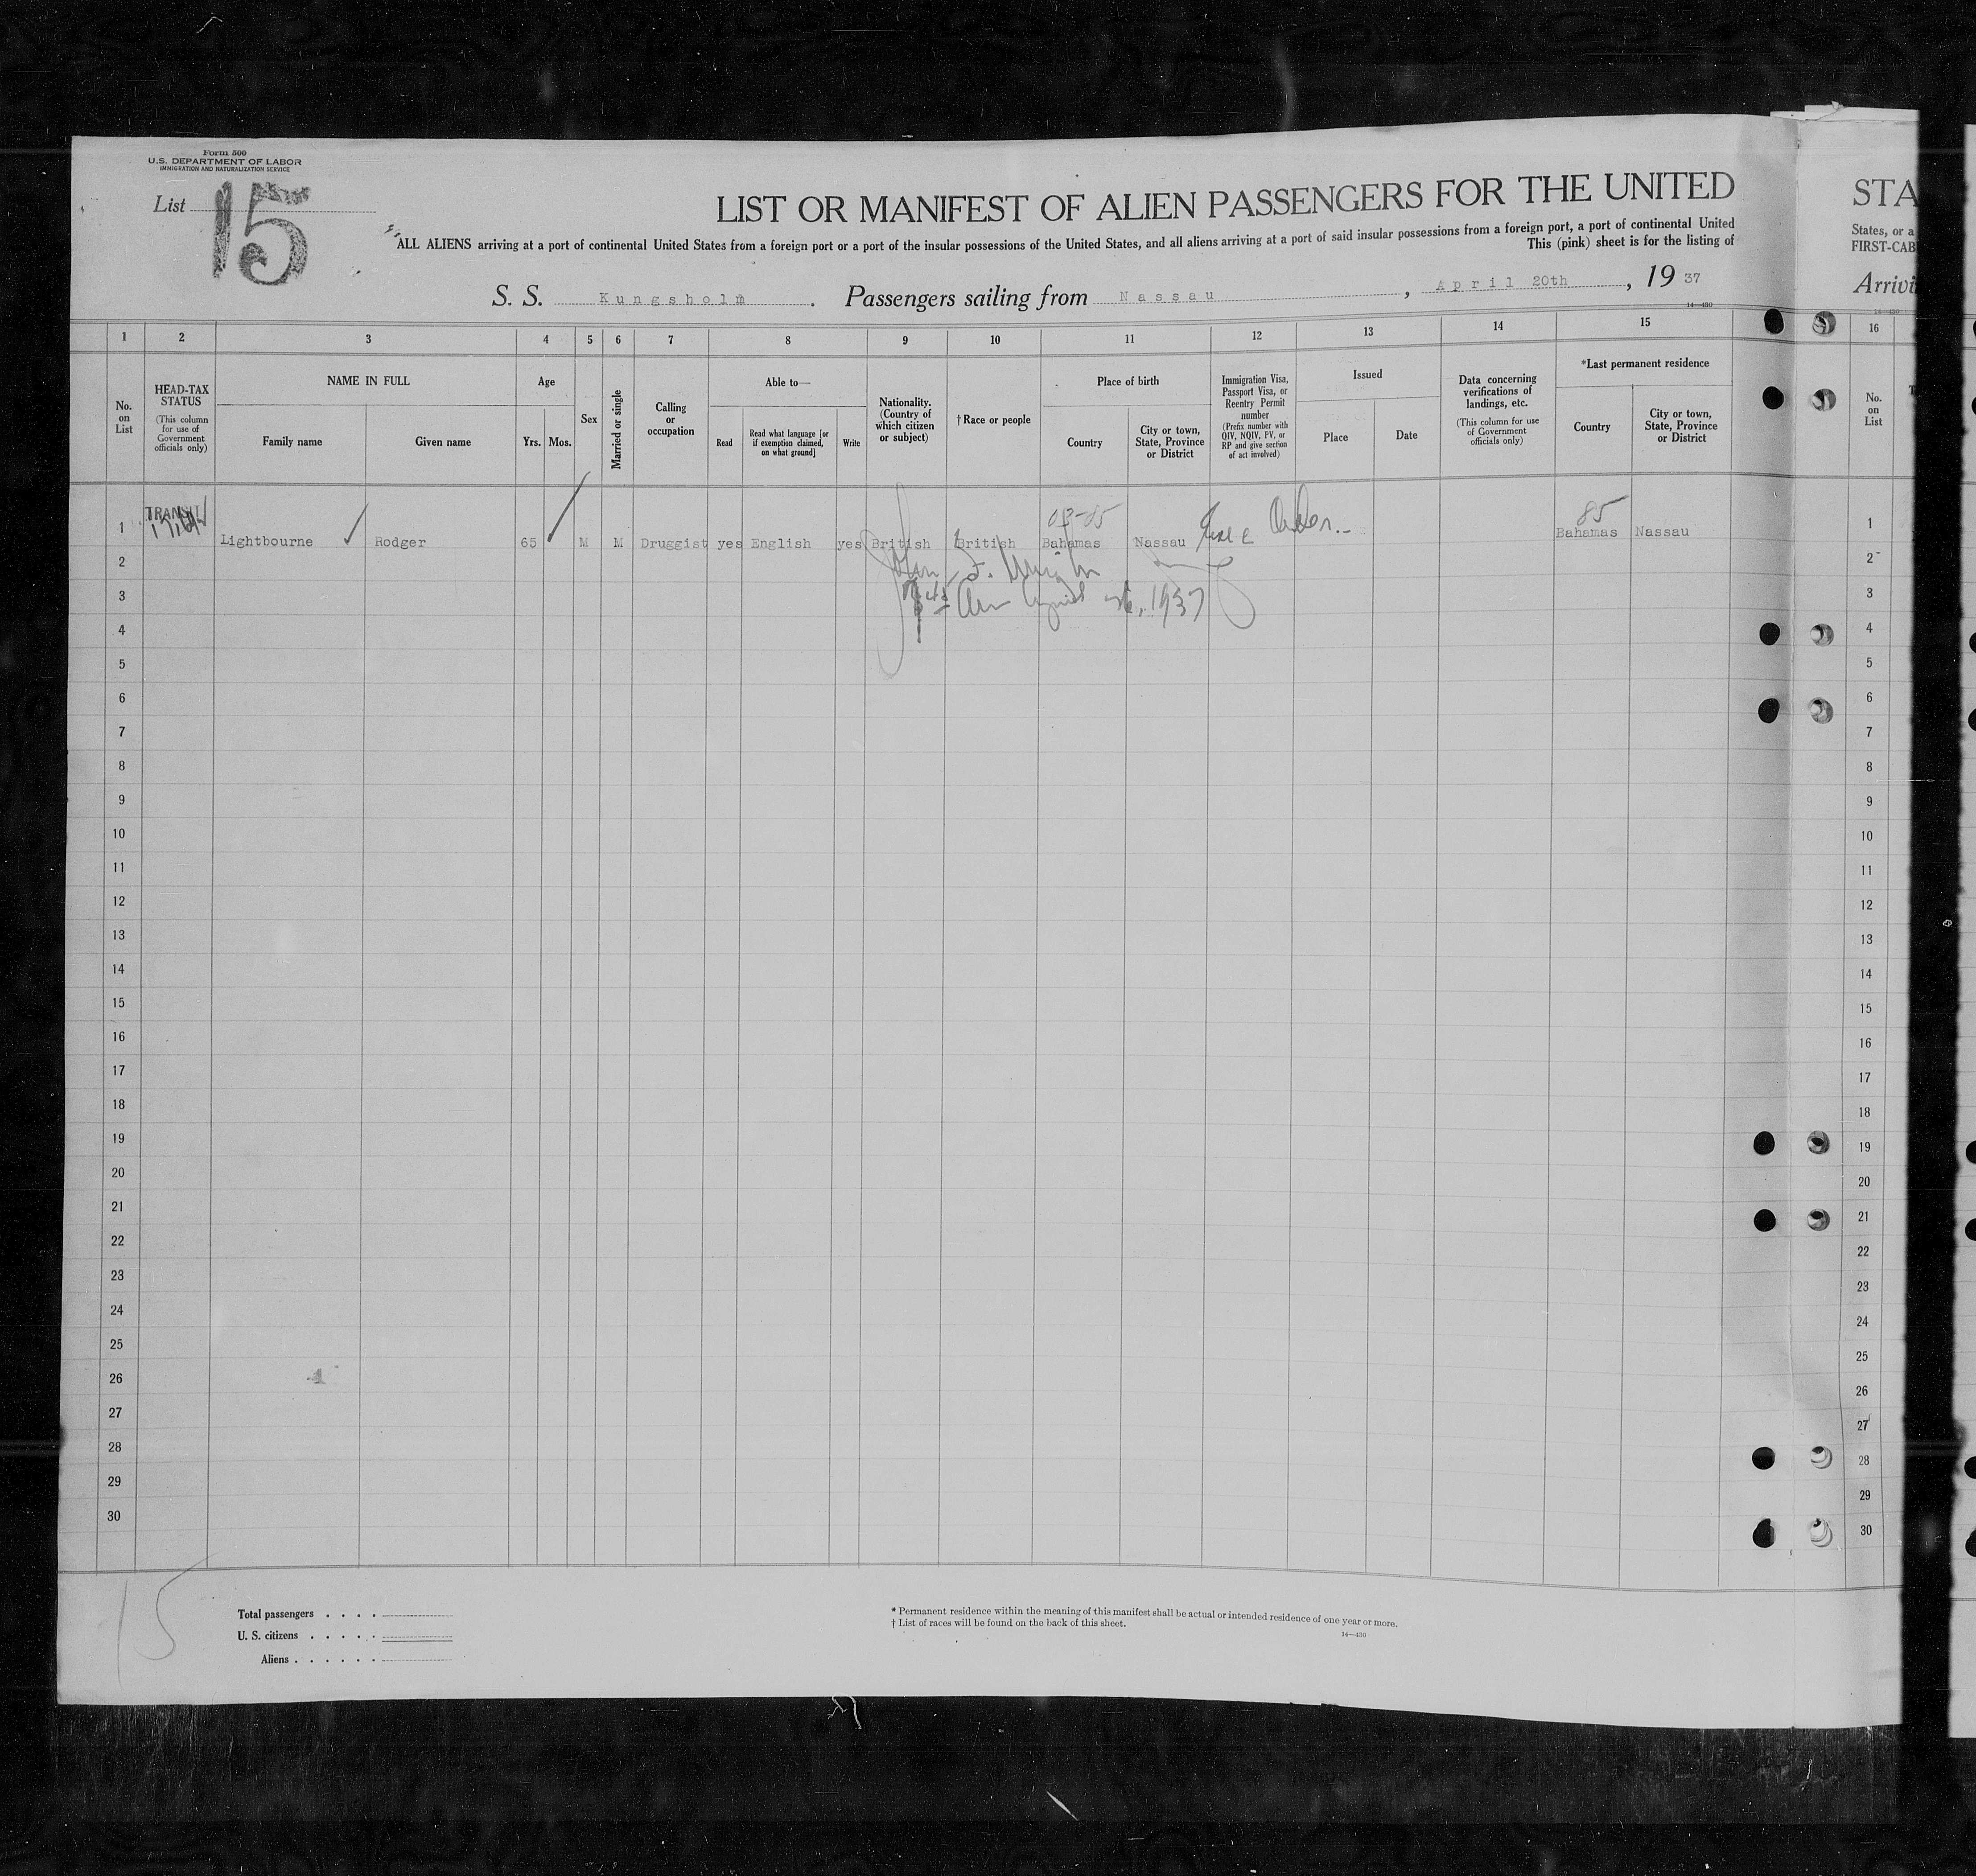 Form 500
U.S. DEPARTMENT OF LABOR
IMMIGRATION AND NATURALIZATION SERVICE
List 15
LIST OR MANIFEST OF ALIEN PASSENGERS FOR THE UNITED
STA
ALL ALIENS arriving at a port of continental United States from a foreign port or a port of the insular possessions of the United States, and all aliens arriving at a port of said insular possessions from a foreign port, a port of continental United
States, or a
This (pink) sheet is for the listing of
FIRST-CAB
S. S. Kungsholm. Passengers sailing from Nassau, April 20th, 1937
Arrivi
14—430
1 2 3 4 5 6 7 8 9 10 11 12 13 14 15 16
No. on List
HEAD-TAX STATUS
(This column for use of Government officials only)
NAME IN FULL
Family name Given name
Age
Yrs. Mos.
Sex
Married or single
Calling or occupation
Able to—
Read
Read what language [or if exemption claimed, on what ground]
Write
Nationality. (Country of which citizen or subject)
†Race or people
Place of birth
Country
City or town, State, Province or District
Immigration Visa, Passport Visa, or Reentry Permit number
(Prefix number with QIV, NQIV, PV, or RP and give section of act involved)
Issued
Place Date
Data concerning verifications of landings, etc.
(This column for use of Government officials only)
*Last permanent residence
Country
City or town, State, Province or District
No. on List
TRANSIT
85
1 Lightbourne Rodger 65 M M Druggist yes English yes British British Bahamas Nassau Bahamas Nassau 1
2 John 2
3 1937 3
4 4
5 5
6 6
7 7
8 8
9 9
10 10
11 11
12 12
13 13
14 14
15 15
16 16
17 17
18 18
19 19
20 20
21 21
22 22
23 23
24 24
25 25
26 26
27 27
28 28
29 29
30 30
15
Total passengers . . . .
U. S. citizens . . . . .
Aliens . . . . . .
* Permanent residence within the meaning of this manifest shall be actual or intended residence of one year or more.
† List of races will be found on the back of this sheet.
14—430